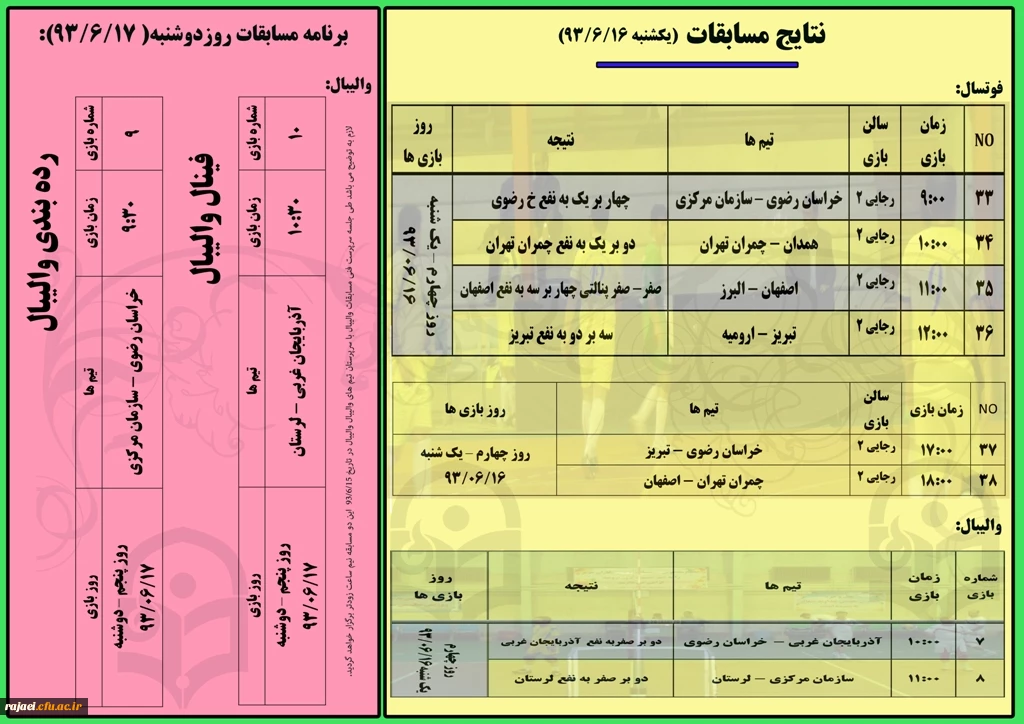 نتایج مسابقات (یکشنبه ۹۳/۶/۱۶)
فوتسال:
NO زمان بازی سالن بازی تیم ها نتیجه روز بازی ها
۳۳ ۹:۰۰ رجایی ۲ خراسان رضوی – سازمان مرکزی چهار بر یک به نفع خ رضوی
۳۴ ۱۰:۰۰ رجایی ۲ همدان – چمران تهران دو بر یک به نفع چمران تهران
۳۵ ۱۱:۰۰ رجایی ۲ اصفهان – البرز صفر– صفر پنالتی چهار بر سه به نفع اصفهان
۳۶ ۱۲:۰۰ رجایی ۲ تبریز – ارومیه سه بر دو به نفع تبریز
روز چهارم – یک شنبه
۹۳/۰۶/۱۶
NO زمان بازی سالن بازی تیم ها روز بازی ها
۳۷ ۱۷:۰۰ رجایی ۲ خراسان رضوی – تبریز
۳۸ ۱۸:۰۰ رجایی ۲ چمران تهران – اصفهان
روز چهارم – یک شنبه
۹۳/۰۶/۱۶
والیبال:
شماره بازی زمان بازی تیم ها نتیجه روز بازی ها
۷ ۱۰:۰۰ آذربایجان غربی – خراسان رضوی دو بر صفر به نفع آذربایجان غربی
۸ ۱۱:۰۰ سازمان مرکزی – لرستان دو بر صفر به نفع لرستان
روز چهارم
یک شنبه ۹۳/۰۶/۱۶
برنامه مسابقات روز دوشنبه( ۹۳/۶/۱۷):
والیبال:
لازم به توضیح می باشد طی جلسه سرپرست فنی مسابقات والیبال با سرپرستان تیم های والیبال والیبال در تاریخ 93/6/15 این دو مسابقه نیم ساعت زودتر برگزار خواهد گردید.
فینال والیبال
شماره بازی زمان بازی تیم ها روز بازی
۱۰ ۱۰:۳۰ آذربایجان غربی – لرستان روز پنجم – دوشنبه
۹۳/۰۶/۱۷
رده بندی والیبال
شماره بازی زمان بازی تیم ها روز بازی
۹ ۹:۳۰ خراسان رضوی – سازمان مرکزی روز پنجم – دوشنبه
۹۳/۰۶/۱۷
rajaei.cfu.ac.ir